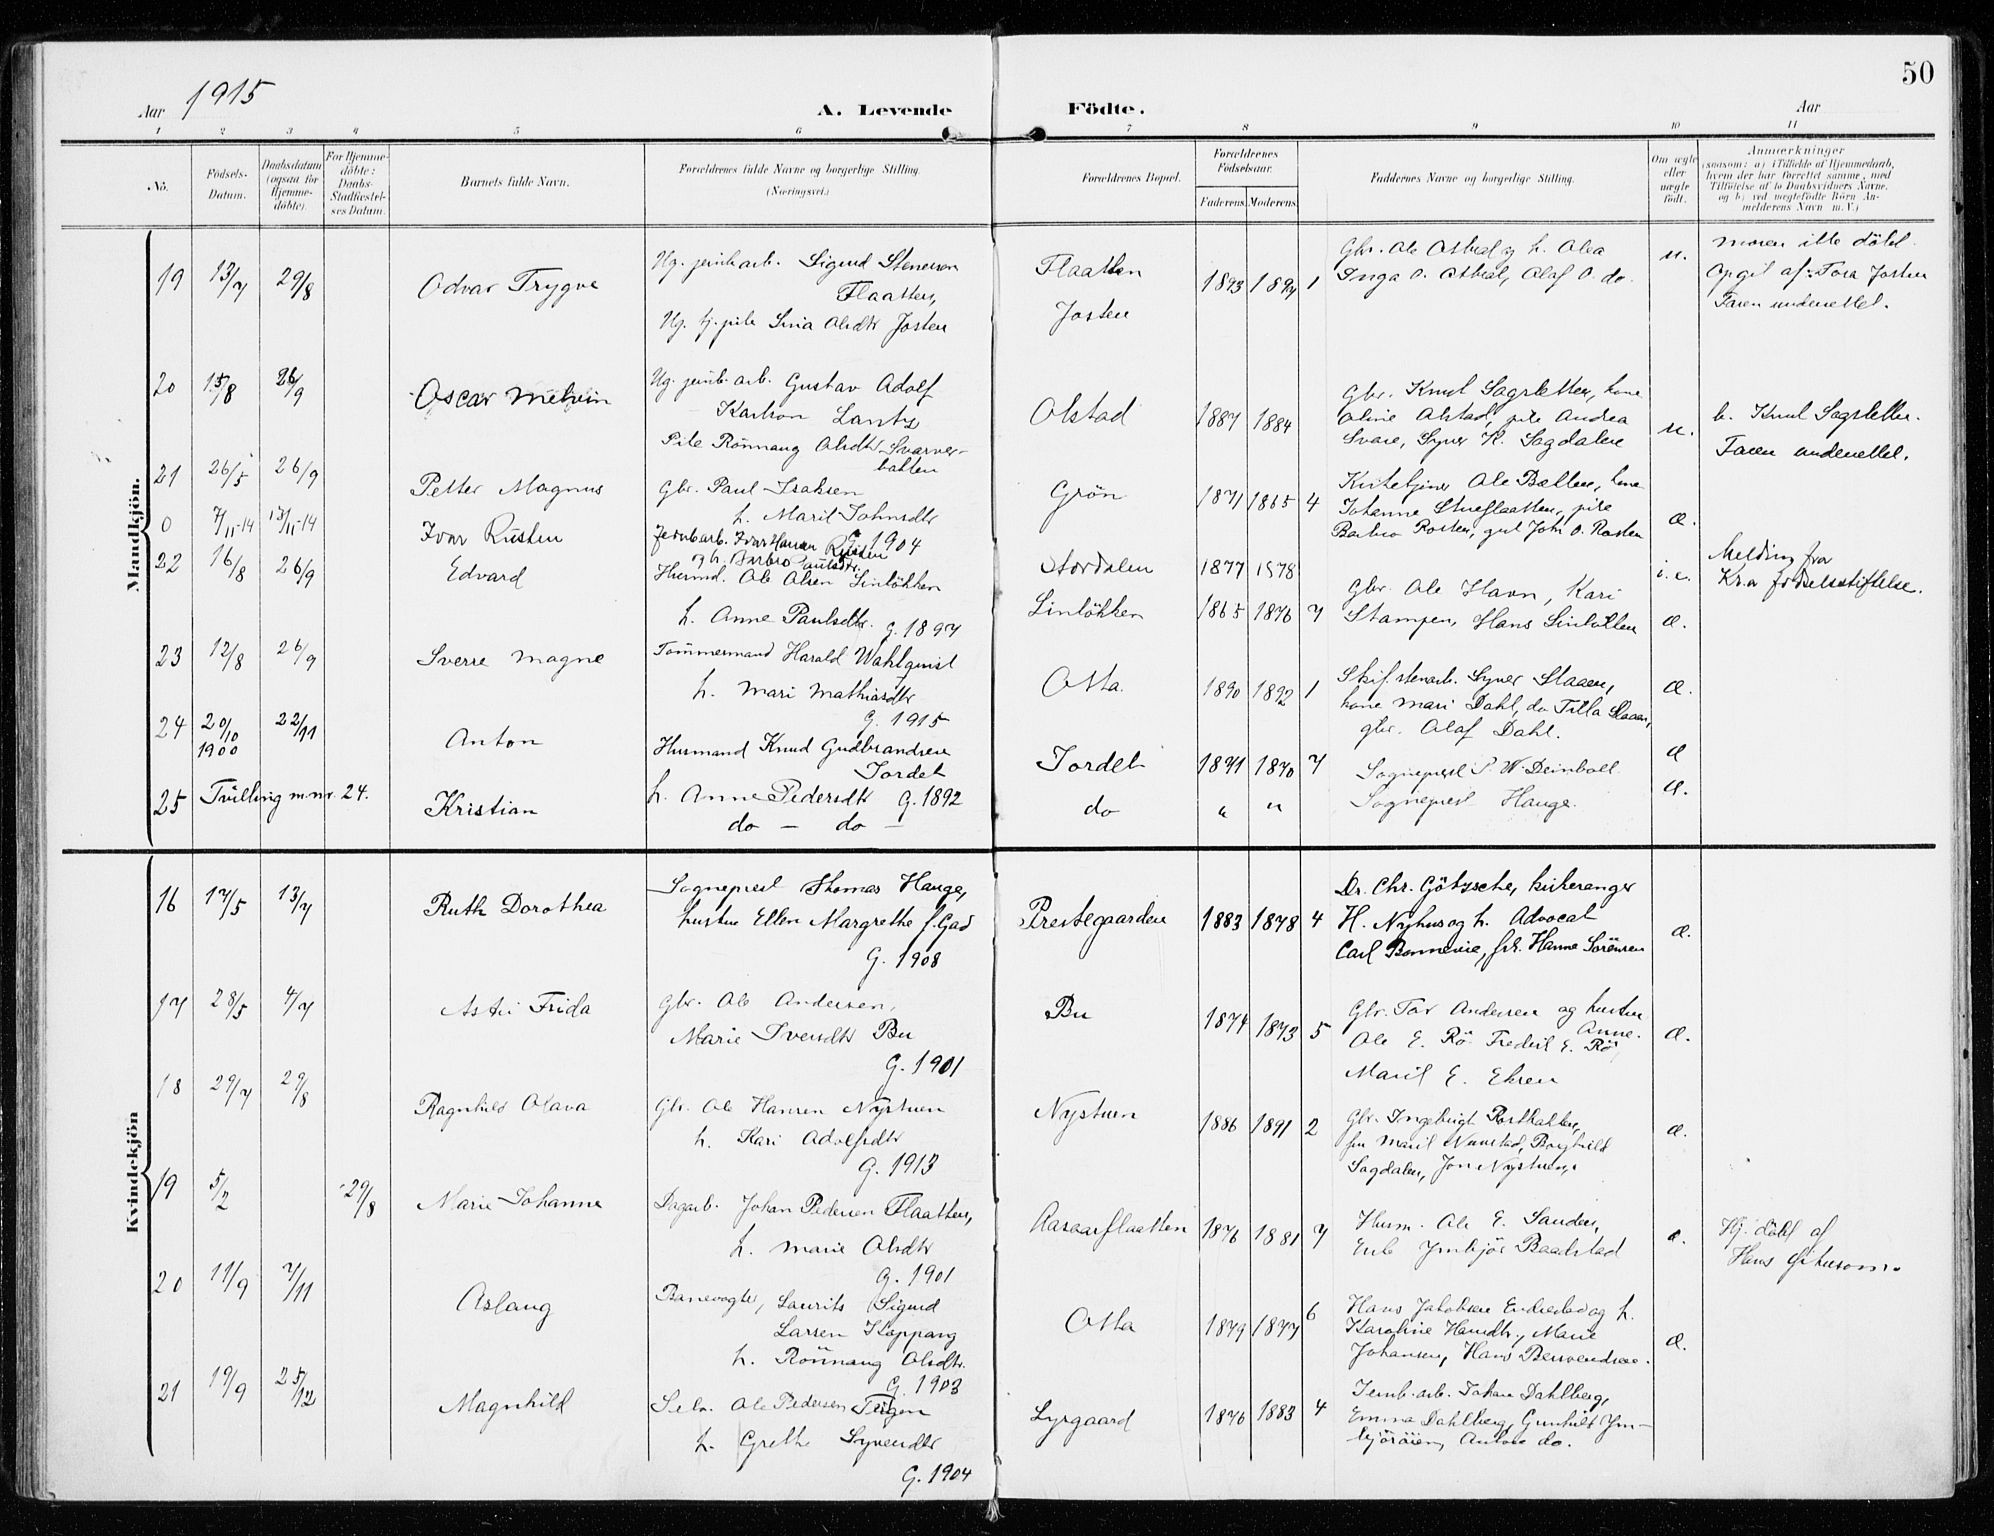 50
Aar 1915
A. Levende Födte.
Aar
1 2 3 4 5 6 7 8 9 10 11
No.
Födsels-Datum.
Daabsdatum (ogsaa for Hjemme-döbte).
For Hjemme-döbte: Daabs-Stadfæstel-ses Datum.
Barnets fulde Navn.
Forældrenes fulde Navne og borgerlige Stilling. (Næringsvei.)
Forældrenes Bopæl.
Forældrenes Födselsaar.
Faderens. Moderens.
Faddernes Navne og borgerlige Stilling.
Om ægte eller uægte födt.
Anmærkninger
(saasom: a) i Tilfælde af Hjemmedaab, hvem der har forrettet samme, med Tilföielse af to Daabsvidners Navne, og b) ved uægtefödte Börn An-melderens Navn m. V.)
Mandkjön.
19 13/7 29/8 Odvar Trygve
Ug. jernb.arb. Sigurd Stenersen
Flaatten,
Ug. tj.pike Olsdtr Josten
Flaatten
Josten
1893 1894 1
Gbr. Ole
Inga O. Olaf O. do.
u.
moren ikke döbt.
Opgit af: Tora Josten
Faren underrettet.
20 15/8 26/9 Oscar
Ug. jernb. arb. Gustav Adolf
Karlson Lantz
Pike Rönnaug Olsdtr Svarver-
bakken
Olstad
1887 1884
Gbr. Knut Sagsletten, kone
Oline Olstad, pike Andrea
Svare, Syver K. Sagdalen
u.
b. Knut Sagsletten.
Faren underrettet.
21 26/5 26/9 Petter Magnus
Gbr. Paul Isaksen
h. Marit Johnsdtr
G. 1904
Grön
1871 1865 4
Ole Bakken, kone
Johanne Stueflaatten, pike
Barbro Rosten, gut John O. Rosten
Æ.
0 7/11-14 13/11-14 Ivar Rusten
Jernbarb. Ivar Hansen Rusten
og h. Barbro Paulsdtr.
Stordalen
1877 1878
i. e.
Melding fra
Kr.a födselsstiftelse.
22 16/8 26/9 Edvard
Husmd. Ole Olsen Sinlökken
h. Anne Paulsdtr. G. 1897
Sinlökken
1865 1876 7
Gbr. Ole Havn, Kari
Stampen, Hans
Æ.
23 12/8 26/9 Sverre Magne
Tömmermand Harald Wahlquist
h. Mari Mathiasdtr
G. 1915
Otta.
1890 1892 1
Skif.stenarb. Syver Slaaen,
kone Mari Dahl, do Tilla Slaaen,
gbr. Olaf Dahl.
Æ.
24 20/10 1900 22/11 Anton
Husmand Knud Gudbrandsen
Jordet
h. Anne Pedersdtr G. 1892
Jordet
1870 7
Sogneprest P. W. Deinboll.
Æ
25 Tvilling m. nr. 24. Kristian
do — do —
do
" "
Sogneprest Hauge.
Æ.
Kvindekjön
16 17/5 13/7 Ruth Dorothea
Sogneprest Thomas Hauge,
hustru Ellen Margrethe f. Gad
G. 1908
Prestegaarden
1883 1878 4
Dr. Chr. Götzsche, kirkesanger
H. Nyhus og h. Advocat
Carl Bonnevie, frk. Hanne Sörensen
Æ.
17 28/5 4/7 Astri Frida
Gbr. Ole Andersen,
Marie Svensdtr Bu
G. 1901
Bu
1874 1873 5
Gbr. Tor Andersen og hustru
Anne.
Ole E. Rö Fredrik E. Rö,
Marit E. Ekren
Æ.
18 29/7 29/8 Ragnhild Olava
Gbr. Ole Hansen Nystuen
h. Kari Adolfsdtr
G. 1913
Nystuen
1886 1891 2
Gbr. Ingebrigt
fru Marit Borghild
Sagdalen, Jon Nystuen.
Æ.
19 5/2 29/8 Marie Johanne
Dagarb. Johan Pedersen Flaatten,
h. Marie Olsdtr
G. 1901
Aasaarflaatten
1876 1881 7
Husm. Ole E. Sanden,
Baalstad
Æ.
Hj. döbt af
Hans
20 11/9 7/11 Aslaug
Banevogter, Laurits Sigurd
Larsen Koppang
h. Rönnaug Olsdtr.
G. 1903
Otta
1879 1877 6
Hans Jakobsen og h.
Karoline Hansdtr., Marie
Johansen, Hans
Æ.
21 19/9 25/12 Magnhild
Selv. Ole Pedersen
h. Grethe Syversdtr
G. 1904
Lyrgaard
1876 1883 4
Jernb. arb. Johan Dahlberg,
Emma Dahlberg, Gunhild
do.